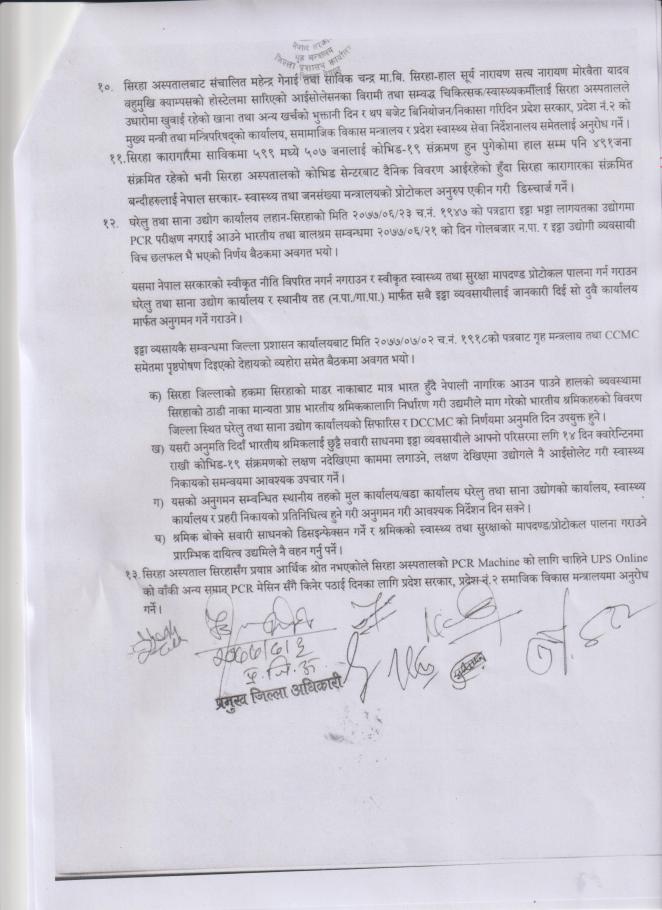 नेपाल सरकार
गृह मन्त्रालय
जिल्ला प्रशासन कार्यालय
१०. सिरहा अस्पतालबाट संचालित महेन्द्र गेनाई तथा साविक चन्द्र मा.बि. सिरहा-हाल सूर्य नारायण सत्य नारायण मोरवैता यादव
वहुमुखि क्याम्पसको होस्टेलमा सारिएको आईसोलेसनका विरामी तथा सम्वद्ध चिकित्सक/स्वास्थ्यकर्मीलाई सिरहा अस्पतालले
उधारोमा खुवाई रहेको खाना तथा अन्य खर्चको भुक्तानी दिन र थप बजेट बिनियोजन/निकासा गरिदिन प्रदेश सरकार, प्रदेश नं.२ को
मुख्य मन्त्री तथा मन्त्रिपरिषद्को कार्यालय, समामाजिक विकास मन्त्रालय र प्रदेश स्वास्थ्य सेवा निर्देशनालय समेतलाई अनुरोध गर्ने।
११. सिरहा कारागारमा साविकमा ५९९ मध्ये ५०७ जनालाई कोभिड-१९ संक्रमण हुन पुगेकोमा हाल सम्म पनि ४९१जना
संक्रमित रहेको भनी सिरहा अस्पतालको कोभिड सेन्टरबाट दैनिक विवरण आईरहेको हुँदा सिरहा कारागारका संक्रमित
बन्दीहरुलाई नेपाल सरकार- स्वास्थ्य तथा जनसंख्या मन्त्रालयको प्रोटोकल अनुरुप एकीन गरी डिस्चार्ज गर्ने।
१२. घरेलु तथा साना उद्योग कार्यालय लहान-सिरहाको मिति २०७७/०६/२३ च.नं. १९४७ को पत्रद्वारा इट्टा भट्टा लागयतका उद्योगमा
PCR परीक्षण नगराई आउने भारतीय तथा बालश्रम सम्वन्धमा २०७७/०६/२१ को दिन गोलबजार न.पा. र इट्टा उद्योगी व्यवसायी
विच छलफल भै भएको निर्णय बैठकमा अवगत भयो।
यसमा नेपाल सरकारको स्वीकृत नीति विपरित नगर्न नगराउन र स्वीकृत स्वास्थ्य तथा सुरक्षा मापदण्ड प्रोटोकल पालना गर्न गराउन
घरेलु तथा साना उद्योग कार्यालय र स्थानीय तह (न.पा./गा.पा.) मार्फत सबै इट्टा व्यवसायीलाई जानकारी दिई सो दुवै कार्यालय
मार्फत अनुगमन गर्ने गराउने।
इट्टा व्यसायकै सम्वन्धमा जिल्ला प्रशासन कार्यालयबाट मिति २०७७/०७/०२ च.नं. १९१८को पत्रबाट गृह मन्त्रलाय तथा CCMC
समेतमा पृष्ठपोषण दिइएको देहायको व्यहोरा समेत बैठकमा अवगत भयो।
क) सिरहा जिल्लाको हकमा सिरहाको माडर नाकाबाट मात्र भारत हुँदै नेपाली नागरिक आउन पाउने हालको व्यवस्थामा
सिरहाको ठाडी नाका मान्यता प्राप्त भारतीय श्रमिककालागि निर्धारण गरी उद्यमीले माग गरेको भारतीय श्रमिकहरुको विवरण
जिल्ला स्थित घरेलु तथा साना उद्योग कार्यालयको सिफारिस र DCCMC को निर्णयमा अनुमति दिन उपयुक्त हुने।
ख) यसरी अनुमति दिदाँ भारतीय श्रमिकलाई छुट्टै सवारी साधनमा इट्टा व्यवसायीले आफ्नो परिसरमा लगि १४ दिन क्वारेन्टिनमा
राखी कोभिड-१९ संक्रमणको लक्षण नदेखिएमा काममा लगाउने, लक्षण देखिएमा उद्योगले नै आईसोलेट गरी स्वास्थ्य
निकायको समन्वयमा आवश्यक उपचार गर्ने।
ग) यसको अनुगमन सम्वन्धित स्थानीय तहको मुल कार्यालय/वडा कार्यालय घरेलु तथा साना उद्योगको कार्यालय, स्वास्थ्य
कार्यालय र प्रहरी निकायको प्रतिनिधित्व हुने गरी अनुगमन गरी आवश्यक निर्देशन दिन सक्ने।
घ) श्रमिक बोक्ने सवारी साधनको डिसइन्फेक्सन गर्ने र श्रमिकको स्वास्थ्य तथा सुरक्षाको मापदण्ड/प्रोटोकल पालना गराउने
प्रारम्भिक दायित्व उद्यमिले नै वहन गर्नु पर्ने।
१३. सिरहा अस्पताल सिरहासँग प्रयाप्त आर्थिक श्रोत नभएकोले सिरहा अस्पतालको PCR Machine को लागि चाहिने UPS Online
को वाँकी अन्य समान PCR मेसिन सँगै किनेर पठाई दिनका लागि प्रदेश सरकार, प्रदेश नं.२ समाजिक विकास मन्त्रालयमा अनुरोध
गर्ने।
प्र.जि.अ
प्रमुख जिल्ला अधिकारी